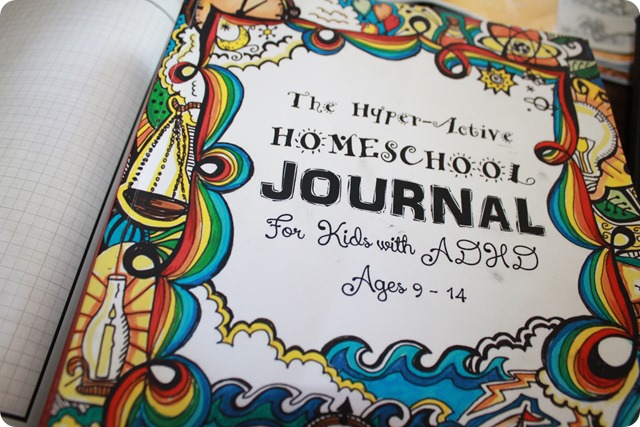 The Hyper-Active
HOMESCHOOL
JOURNAL
For Kids with ADHD
Ages 9 - 14